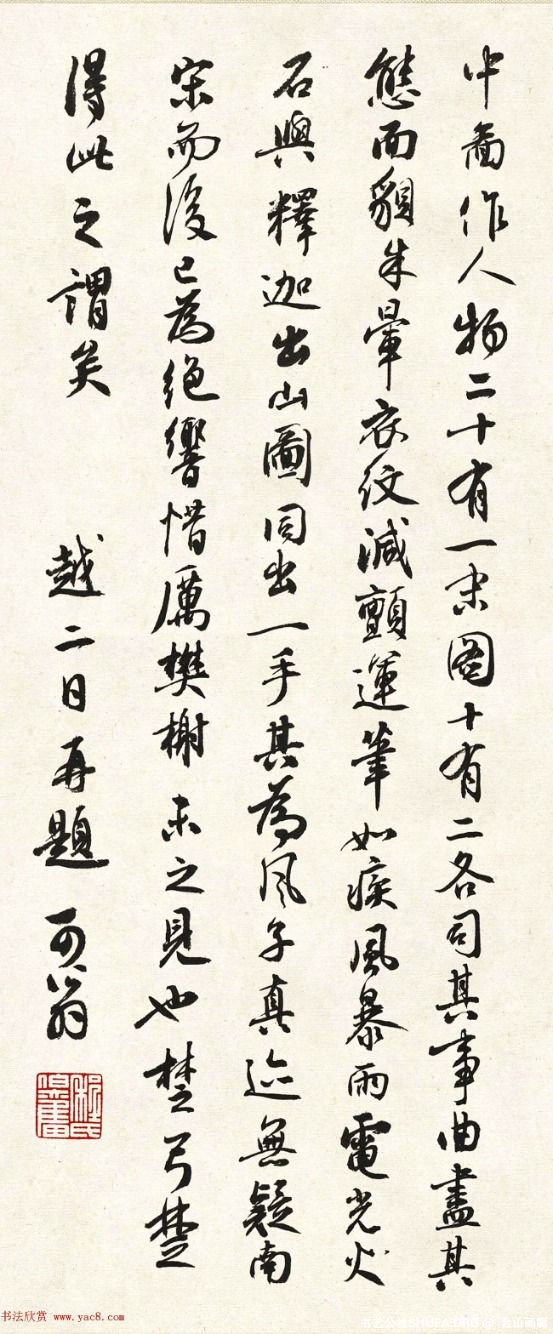 中畵作人物二十有一圖十有二各司其事曲盡其
態面貌朱暈衣紋減顫運筆如疾風暴雨電光火
石與釋迦出山圖同出一手其為風子真迹無疑南
宋而後已為絕響惜厲樊榭未之見也楚弓楚
得此之謂矣 越二日再題 可翁
程氏伯奮
书法欣赏 www.yac8.com